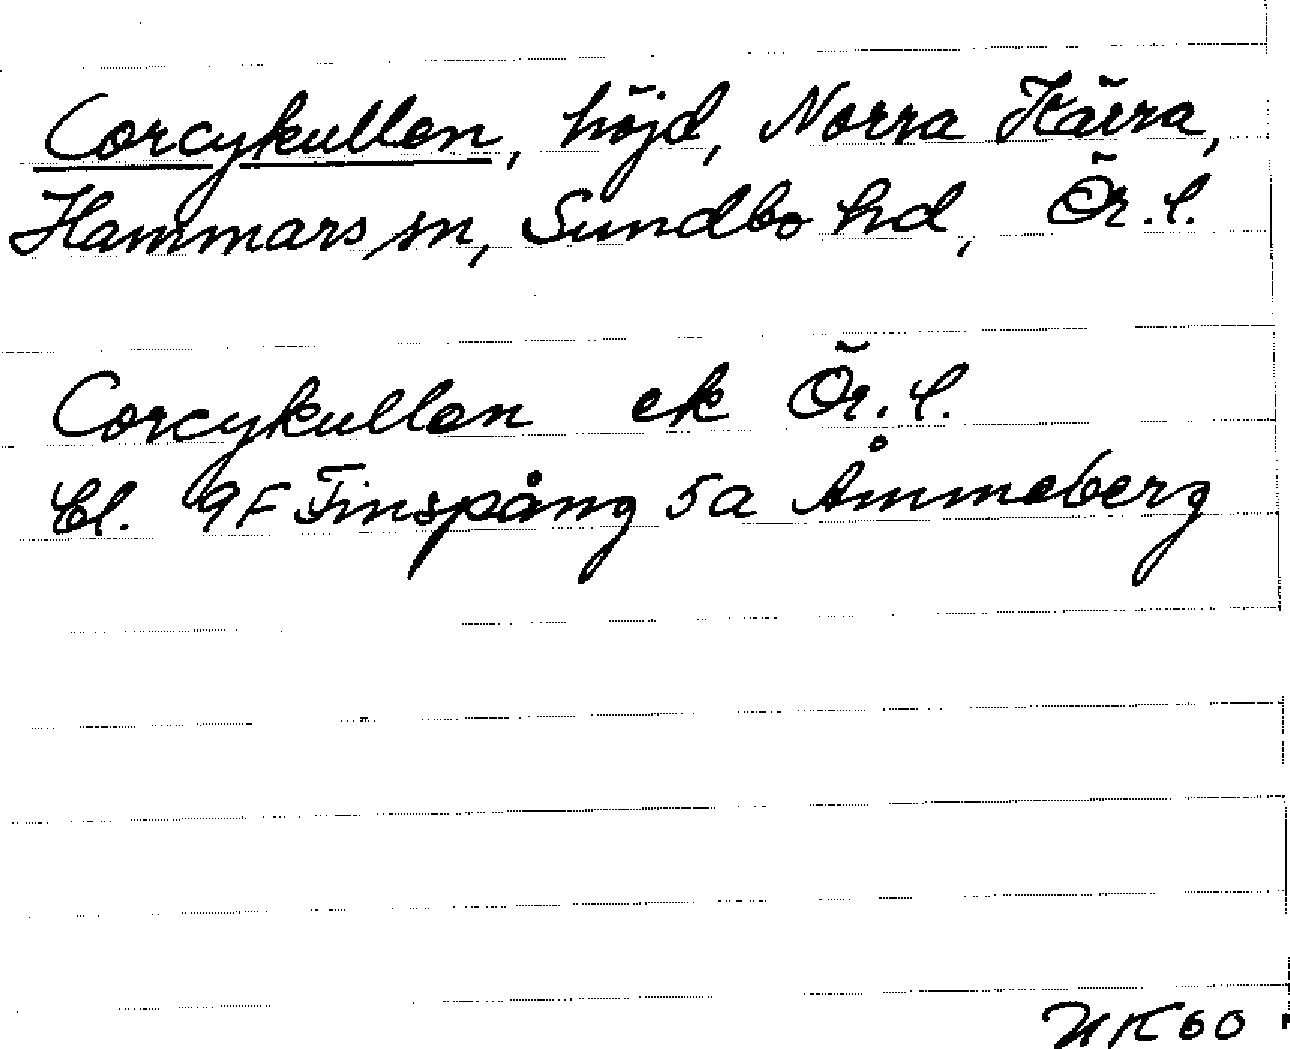 Corcykullen, höjd, Norra Härra,
Hammars sn, Sundbo hd, Ör.l.
Corcykullen ek Ör.l.
Bl. 9F Finspång 5a Åmmeberg
NK60